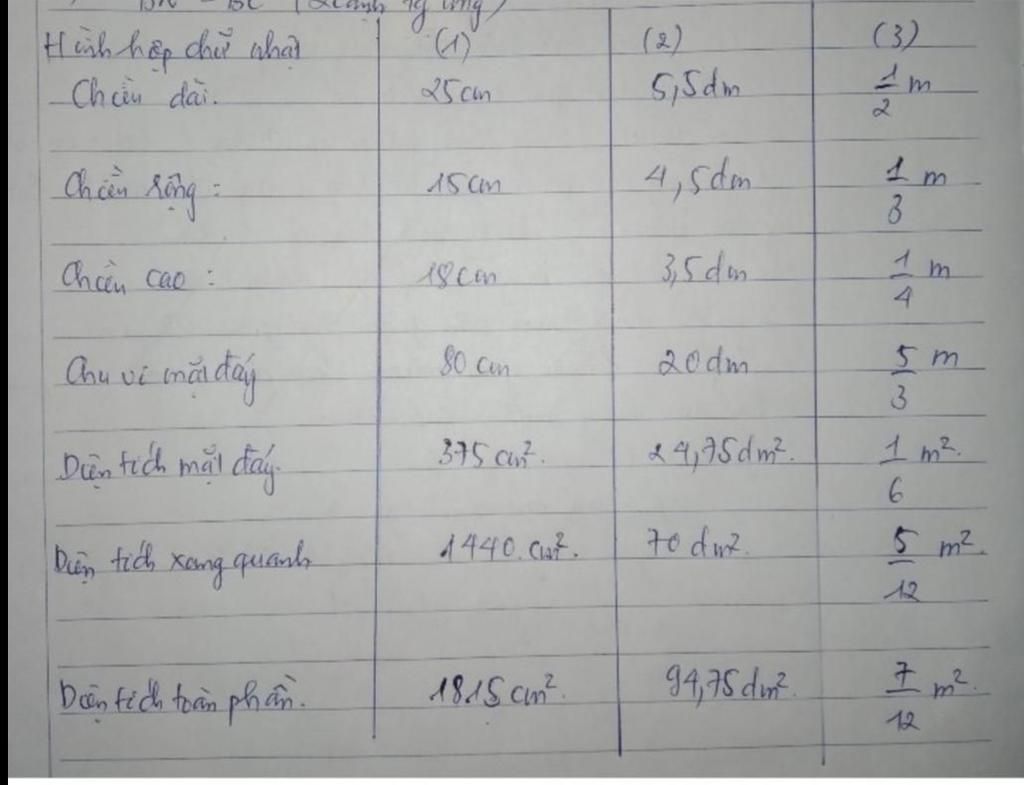 BC (2 cạnh tg ứng)
Hình hộp chữ nhật (1) (2) (3)
Chiều dài. 25cm 5,5dm 1/2 m
Chiều rộng: 15cm 4,5dm 1/3 m
Chiều cao: 18cm 3,5dm 1/4 m
Chu vi mặt đáy 80cm 20dm 5/3 m
Diện tích mặt đáy. 375 cm². 24,75dm². 1/6 m².
Diện tích xang quanh 1440.cm². 70 dm². 5/12 m².
Diện tích toàn phần. 1815 cm². 94,75dm². 7/12 m².